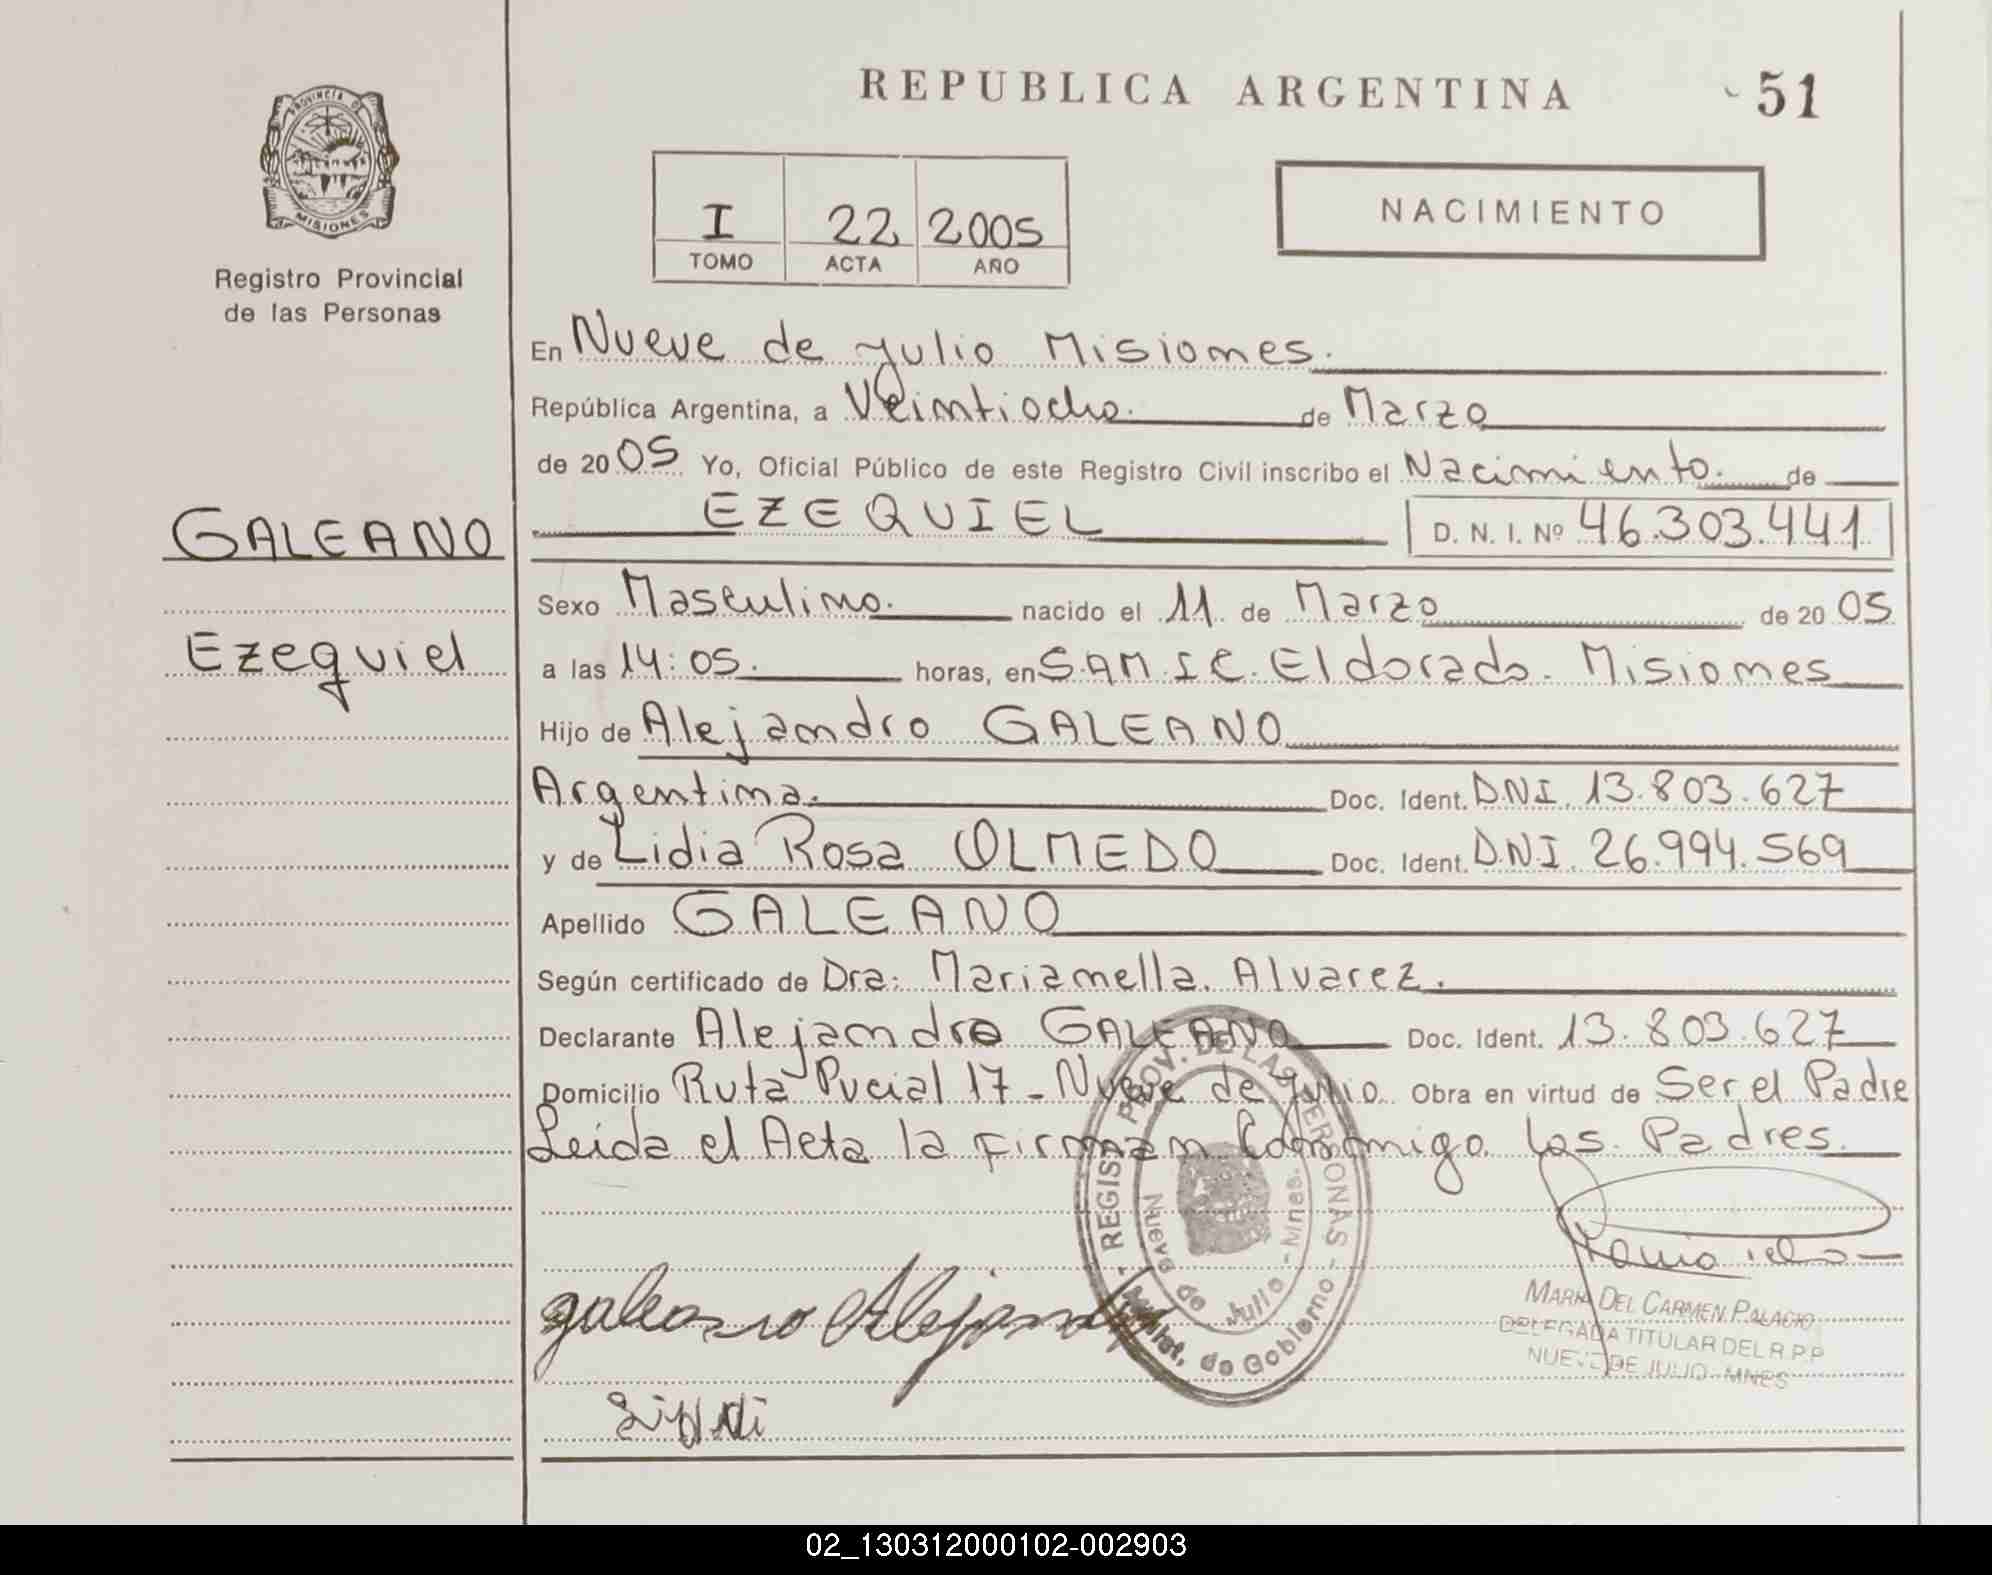 REPUBLICA ARGENTINA
51
PROVINCIA DE
MISIONES
Registro Provincial
de las Personas
I 22 2005
TOMO ACTA AÑO
NACIMIENTO
En Nueve de Julio Misiones.
República Argentina, a Veintiocho. de Marzo
de 2005 Yo, Oficial Público de este Registro Civil inscribo el Nacimiento. de
GALEANO
EZEQUIEL D. N. I. Nº 46.303.441
Sexo Masculino. nacido el 11 de Marzo de 2005
Ezequiel
a las 14:05. horas, en S.AM.I.C. Eldorado. Misiones
Hijo de Alejandro GALEANO
Argentina. Doc. Ident. DNI. 13.803.627
y de Lidia Rosa OLMEDO Doc. Ident. D.N.I. 26.994.569
Apellido GALEANO
Según certificado de Dra: Marianella. Alvarez.
Declarante Alejandro GALEANO Doc. Ident. 13.803.627
Domicilio Ruta Pvcial 17 - Nueve de Julio. Obra en virtud de Ser el Padre
Leida el Acta la Firman Conmigo los Padres.
REGIST. PROV. DE LAS PERSONAS
Nueve de Julio - Mnes.
Minist. de Gobierno
galeano Alejandro
MARIA DEL CARMEN PALACIO
DELEGADA TITULAR DEL R.P.P
NUEVE DE JULIO - MNES
02_130312000102-002903